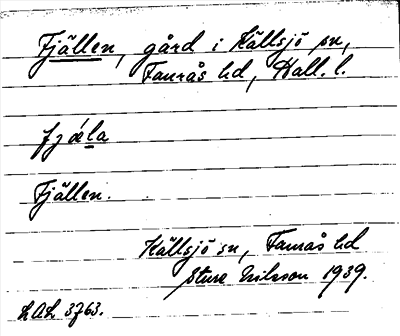 Fjällen, gård i Källsjö sn,
Faurås hd, Hall. l.
fjǽla
Fjällen.
Källsjö sn, Faurås hd
Sture Nilsson 1939.
LAL 3763.